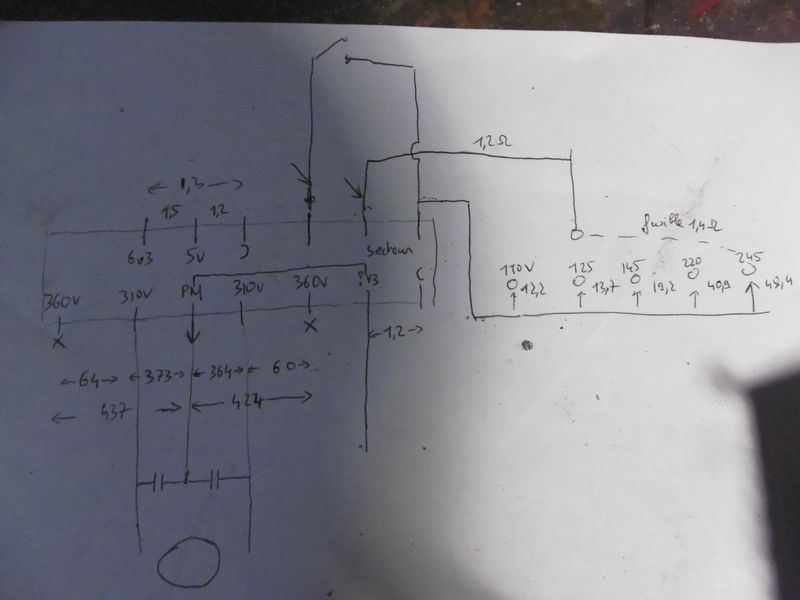 1,2Ω
1,3
1,5 1,2
6v3 5V
Secteur
fusible 1,4Ω
110V 125 145 220 245
12,2 13,7 19,2 40,9 48,4
360V 310V PM 310V 360V
X X
1,2
64 373 364 60
437 424